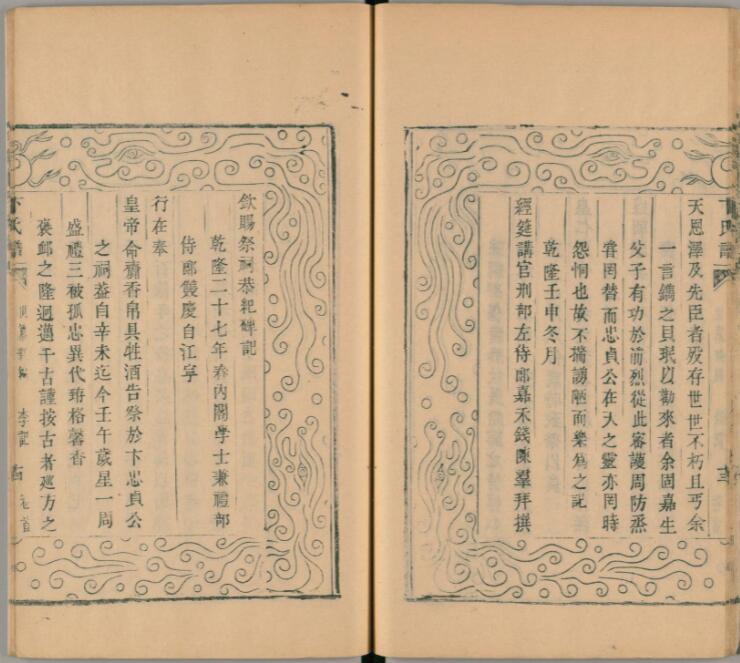 天恩澤及先臣者歿存世世不朽且丐余
一言鐫之貝珉以勸來者余固嘉生
父子有功於前烈從此審護周防烝
嘗罔替而忠貞公在天之靈亦罔時
怨恫也故不揣譾陋而樂為之記
乾隆壬申冬月
經筵講官刑部左侍郎嘉禾錢陳羣拜撰
欽賜祭祠恭紀碑記
乾隆二十七年春內閣學士兼禮部
侍郎雙慶自江寧
行在奉
皇帝命齎香帛具牲酒告祭於卞忠貞公
之祠葢自辛未迄今壬午歲星一周
盛禮三被孤忠異代格馨香
褒卹之隆迥邁千古謹按古者巡方之
卞氏譜